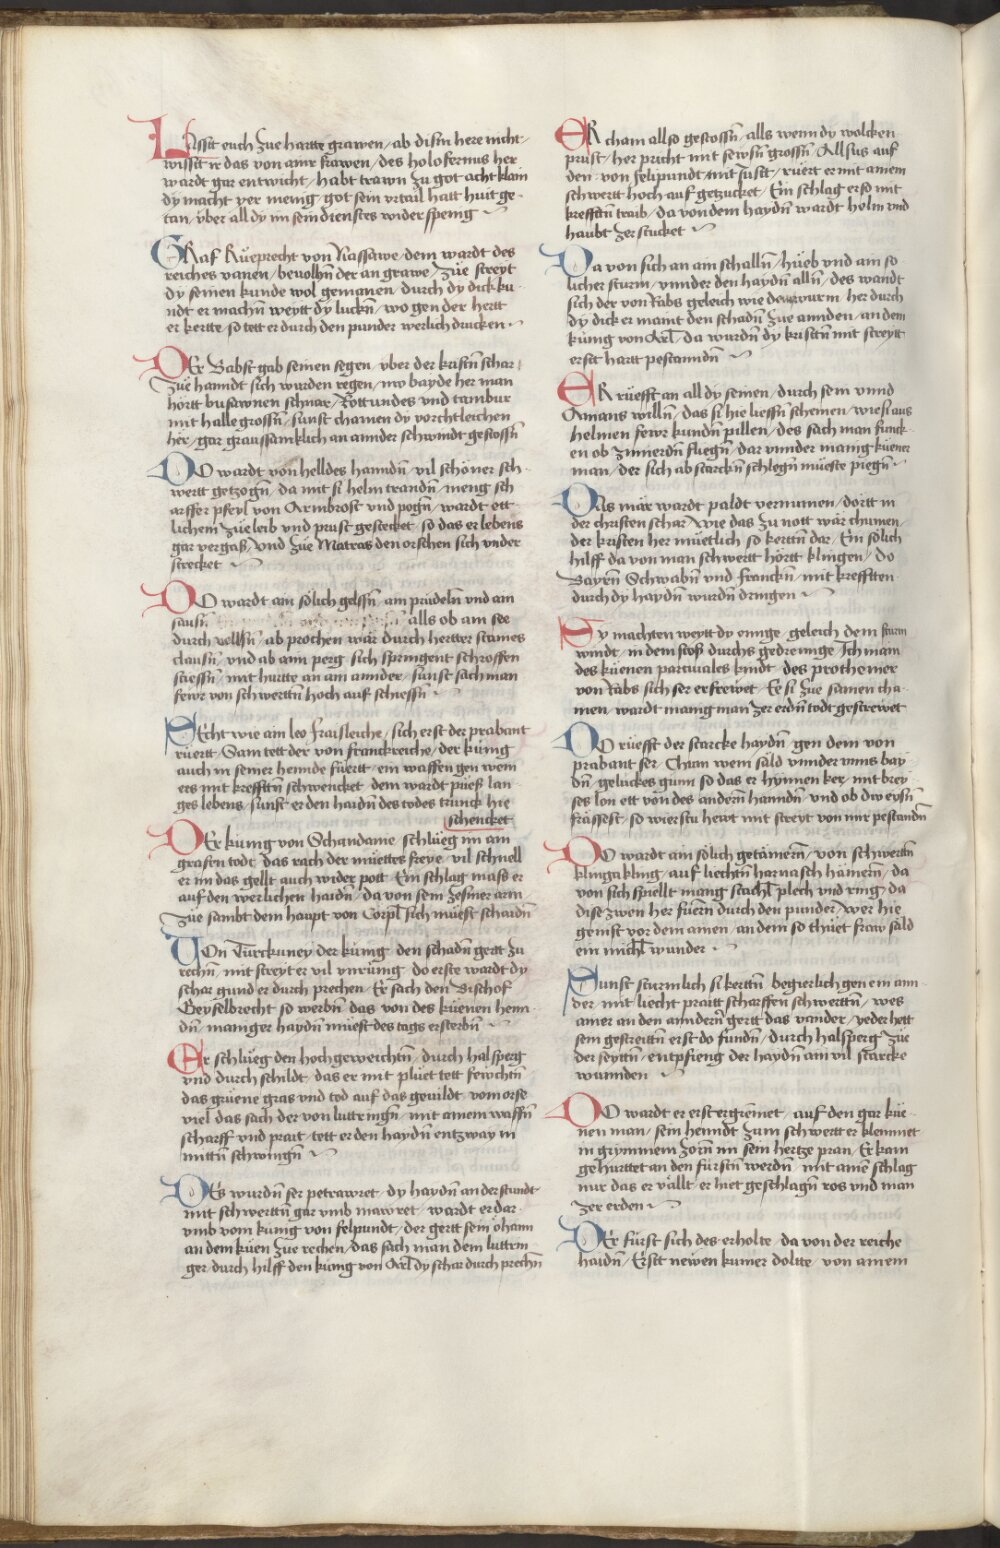 LAsstt euch zue hartte grawen / ab dism here nicht /
wisstt ir das von ainr frawen / des holofernus her
wardt gar entwicht / habt trawn zu got acht klain
dy macht yer menig / got sein vrtail hatt huit ge /
tan / vber all dy im sein dienstes wider spenig
GRaf Rueprecht von Nassawe / dem wardt des
reiches vanen / beuolhn der an grawe / zue streyt
dy seinen kunde wol gemanen / durch dy dick ku /
ndt er machn weytt dy luckn / wo gen der hertt
er kertte / so tett er durch den punder werlich drucken
DEr Babst gab seinen segen / vber der kristn schar /
zue hanndt sich wurden regen / wo bayde her man
hortt busawnen schnar / Rottundes vnd tambur
mit halle grossn / sunst chamen dy vorchtleichen
her / gar graussamklich an annder schwindt gestossn
DO wardt von helldes hanndn / vil schoner sch
wertt getzogn / da mit si helm trandn / meng sch
arffer pfeyl von Armbrost vnd pogn / wardt ett
lichem zue leib vnd prust gestecket / so das er lebens
gar vergaß / vnd zue Matras den orschen sich vnder
strecket
DO wardt ain solich gelssn / ain prudeln vnd ain
sausn alls ob ain see
durch vellsn / ab prochen war durch hertter staines
clausn / vnd ab aim perg sich springent schroffen
stiessn / mit hurtte an ain annder / sunst sach man
fewr von schwerttn hoch auf schiessn
SEcht wie ain leo fraisleiche / sich erst der prabant
ruertt / Sam tett der von franckreiche / der kunig
auch in seiner hennde fuertt / ein waffen gen wem
ers mit kresfftn schwencket / dem wardt pueß lan /
ges lebens / sunst er den haidn des todes trunck hie
schencket
DEr kunig von Schandame / schlueg im ain
grafen todt / das rach der muettes freye / vil schnell
er im das gellt auch wider pott / Ein schlag mass er
auf den werlichen haidn / da von sein zesmer arm
zue sambt dem haupt von Corpl sich muest schaidn
VOn Turckuney der kunig / den schadn gertt zu
rechn / mit streyt er vil vnrunig / do erste wardt dy
schar gund er durch prechen / Er sach den Bischof
Geyselbrecht so werbn / das von des kuenen henn /
dn / maniger haydn muest des tags ersterbn
Er schlueg den hochgeweichtn / durch halsperg
vnd durch schildt / das er mit pluet tett feuchtn
das gruene gras vnd tod auf das geuildt / vom orse
viel das sach der von luttringn / mit ainem waffn
scharff vnd prait / tett er den haydn entzway in
mittn schwingn
DEs wurdn ser petrawret / dy haydn an der stundt
mit schwerttn gar vmb mawret / wardt er dar /
vmb vom kunig von felpundt / der gertt sein oham
an dem kuen zue rechen / das sach man dem luttrin
ger / durch hilff den kunig von Arl dy schar durch prechn
ER cham allso gestossn / alls wenn dy wolcken
prust / her pricht mit sewsn grossn / Allsus auf
den von felipundt / mit Justt / ruert er mit ainem
schwertt hoch auf getzucket / Ein schlag er so mit
kresfftn traib / da von dem haydn wardt helm vnd
haubt zerstucket
Da von sich an ain schalln / hueb vnd ain so
licher sturm / vnnder den haydn alln / des wandt
sich der von Rabs geleich wie der wurm / her durch
dy dick er maint den schadn zue annden / an dem
kunig von Arl / da wurdn dy kristn mit streytt
erst hartt pestanndn
ER ruefft an all dy seinen / durch sein vnnd
Amans willn / das si hie liessn scheinen / wie si aus
helmen fewr kundn pillen / des sach man funck /
en ob zimerdn fliegn / dar vnnder manig kuener
man / der sich ab starckn schlegn mueste piegn
DAs mar wardt paldt vernumen / dortt in
der christen schar / wie das zu nott war chumen /
der kristen her / muetlich so kerttn dar / Ein solich
hilff da von man schwertt hortt klingen / do
Bayrn Schwabn vnd franckn / mit kreffttten
durch dy haydn wurdn dringen
Sy machten weytt dy ennge / geleich dem sturm
windt / in dem stoß durchs gedrennge / Ich main
des kuenen partuales kindt / des prothemer
von Rabs sich ser erfrewet / Ee si zue samen cha /
men / wardt manig man zer erdn todt gestrewet
DO ruefft der starcke haydn / gen dem von
prabant ser / Chum wem sald vnnder vnns bay /
dn / geluckes gunn so das er hynnen ker / mit brey
ses lon ett von des andern hanndn / vnd ob dw eysn
frassest / so wierstu hewt mit streyt von mir pestandn
DO wardt ain solich getamern / von schwerttn
klinga kling / auf liechtn harnasch hamern / da
von sich spuellt manig stachl plech vnd ring / da
dise zwen her fuern durch den punder / wer hie
genist vor dem ainen / an dem so thuet fraw sald
ein michl wunder
Sunst sturmlich si kerttn / begierlich gen ein ann /
der / mit liecht praitt scharffen schwerttn / wes
ainer an den anndern gertt das vander / yeder hett
sein gestreittn erst do fundn / durch halsperg zue
der seyttn / entpfieng der haydn ain vil starcke
wunnden
DO wardt er erst ergrimet / auf den gar kue /
nen man / sein henndt zum schwertt er klemmet
in grymmem zorn im sein hertze pran / Er kam
gehurttet an den furstn werdn / mit aine schlag
nur das er vallt / er hiet geschlagn ros vnd man
zer erden
DEr furst sich des erholte / da von der reiche
haidn / Erst newen kumer doltte / von ainem